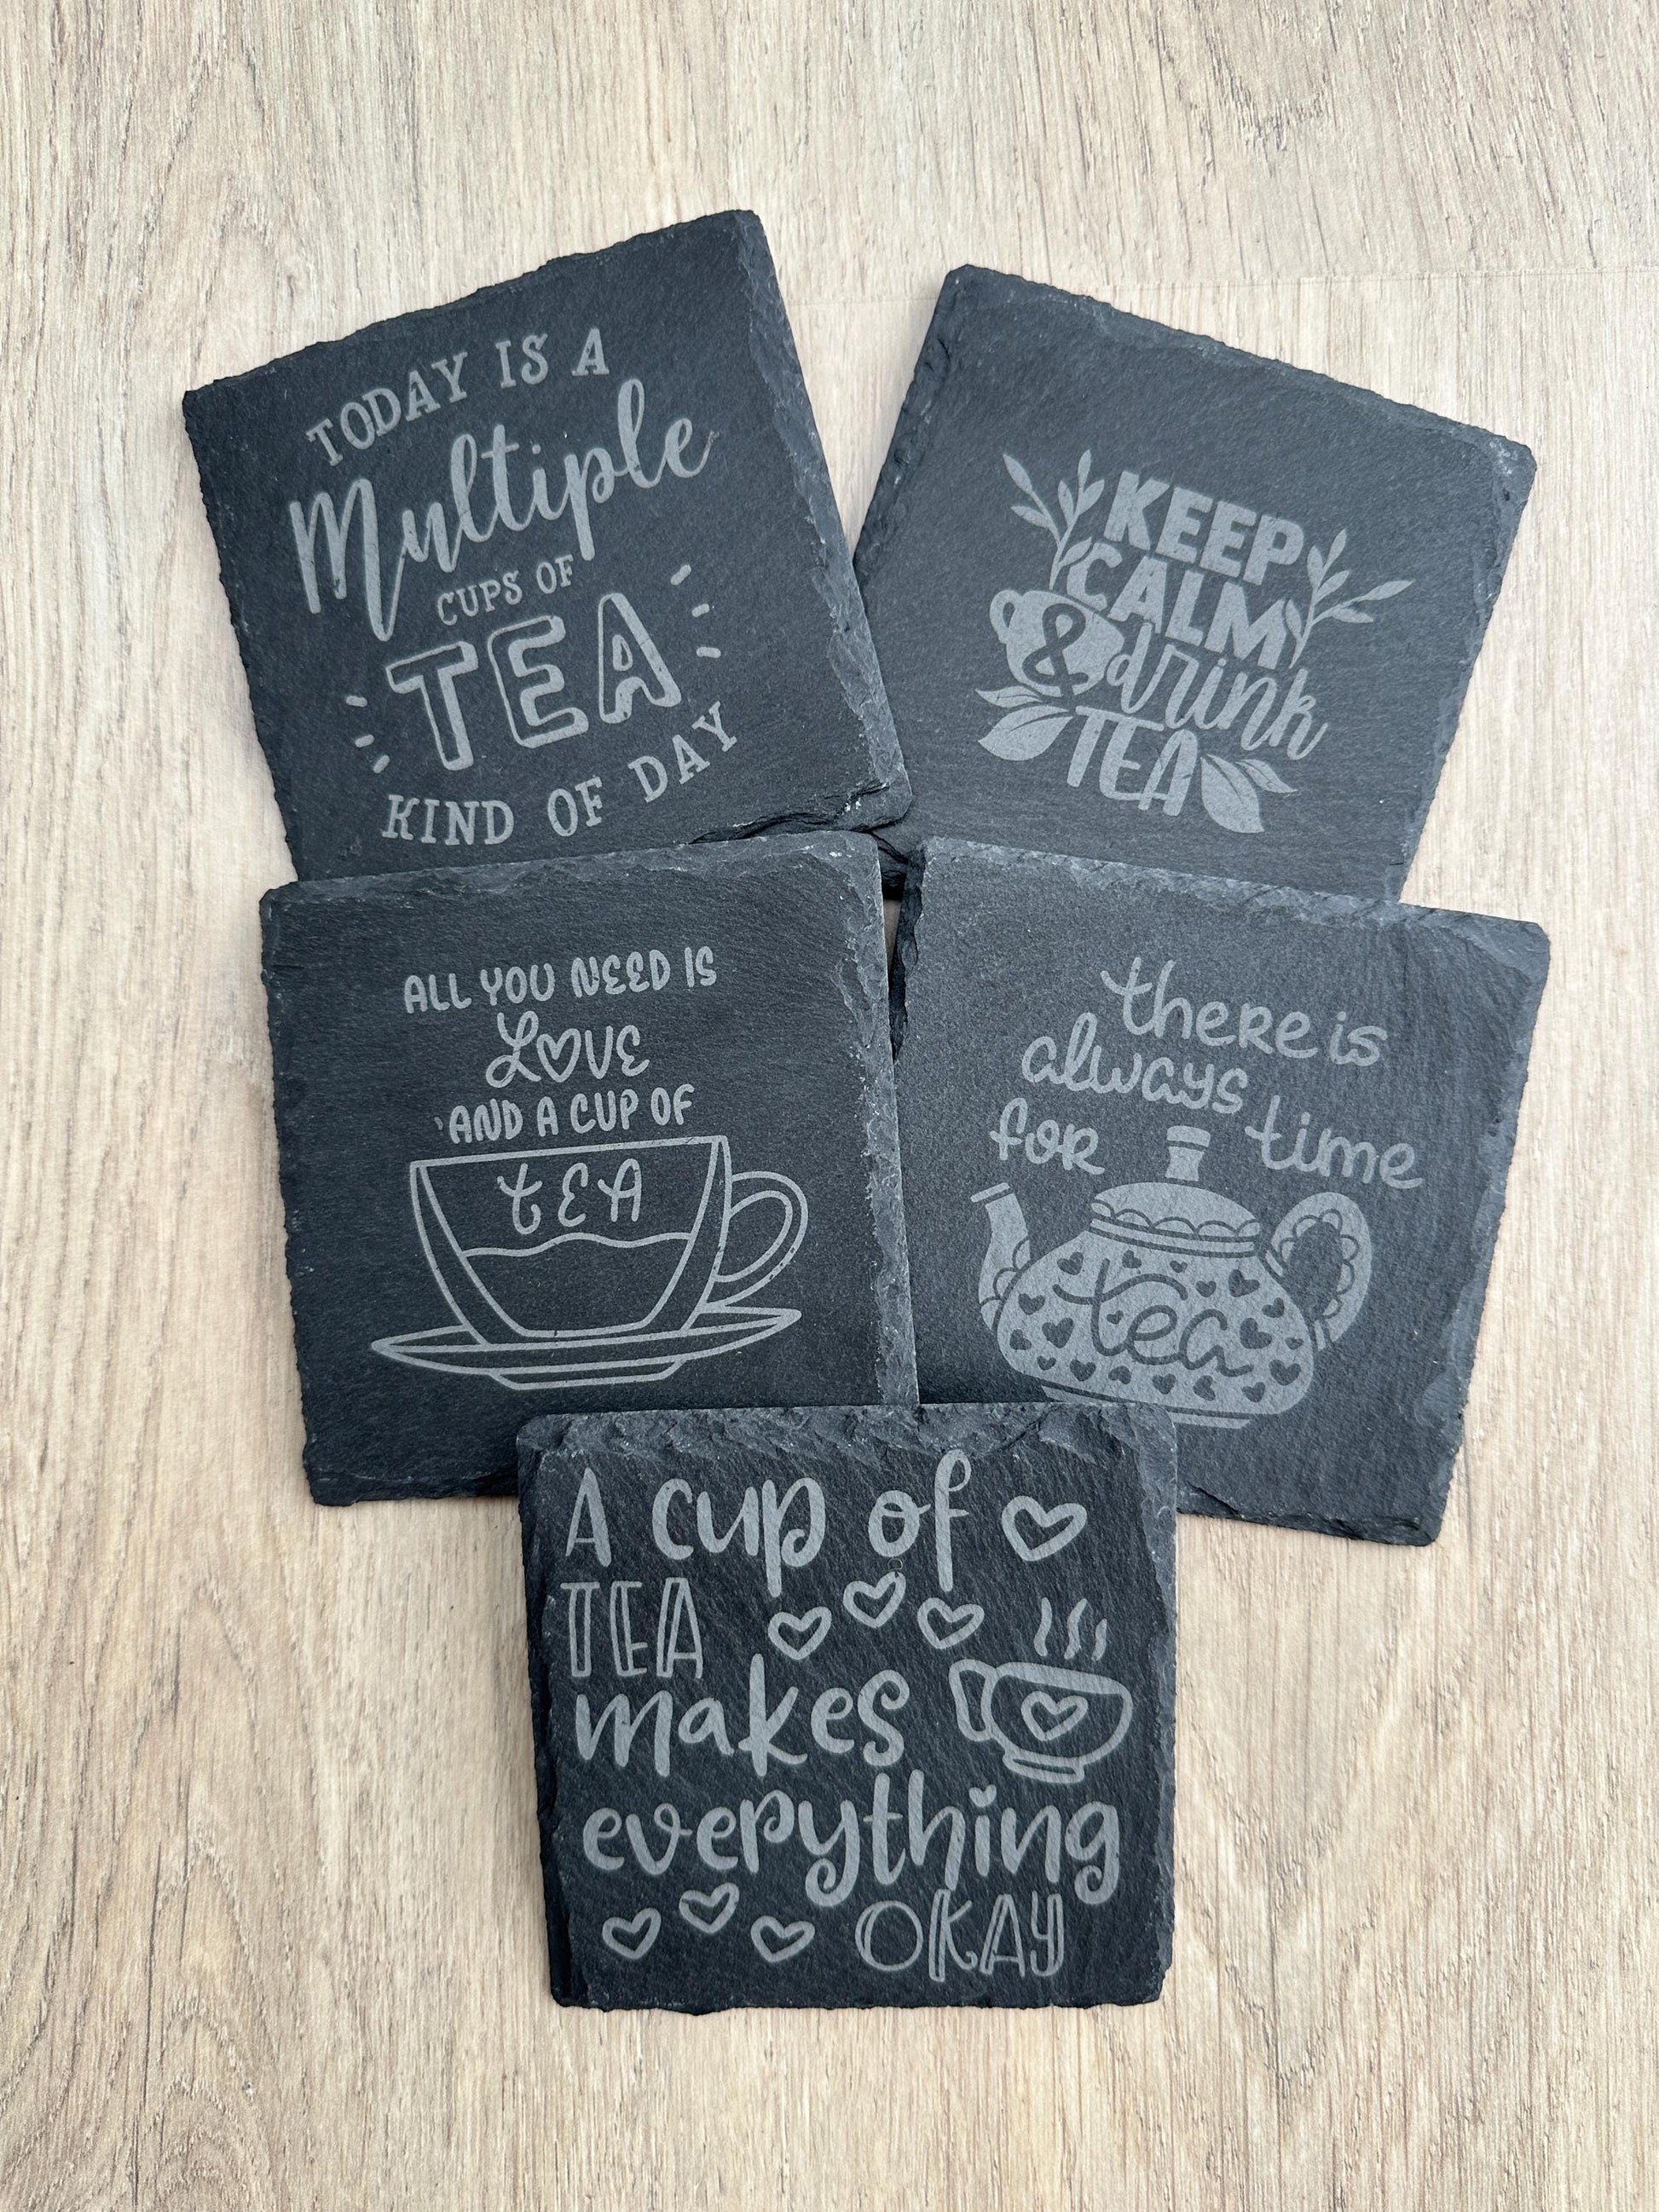 TODAY IS A
Multiple
CUPS OF
TEA
KIND OF DAY
KEEP
CALM
& drink
TEA
ALL YOU NEED IS
LOVE
AND A CUP OF
tEA
there is
always time
for
tea
A cup of
TEA
makes
everything
OKAY